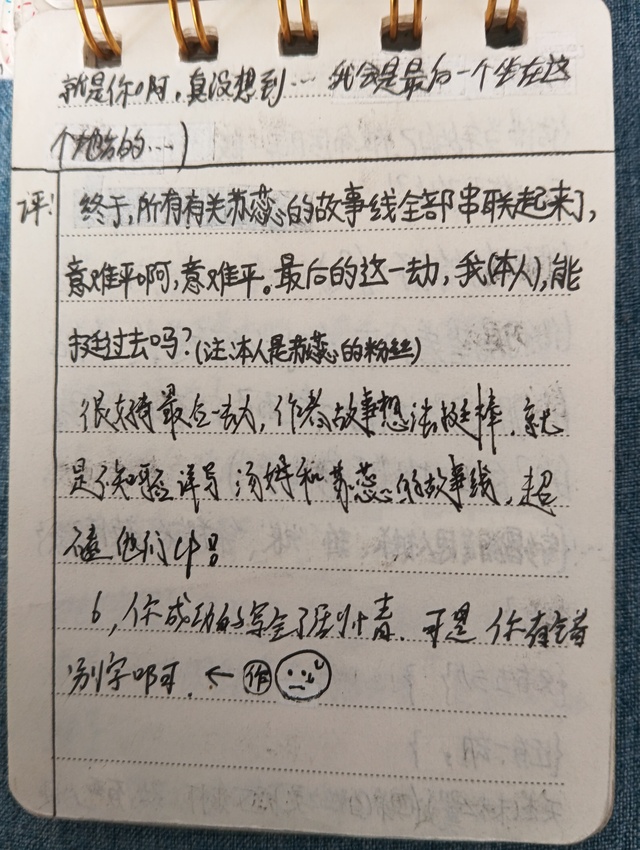 就是你啊,真没想到… 我会是最后一个坐在这
个地方的…)
评: 终于,所有有关苏蕊的故事线全部串联起来了,
意难平啊,意难平。最后的这一劫,我(本人),能
挺过去吗?(注:本人是苏蕊的粉丝)
很好奇最后一劫,作者故事想法挺棒,就
是 详写 汤 和苏蕊的故事线,超
磕他们cp!
6,你成功的写全了剧情,可是你有错
别字啊。←作